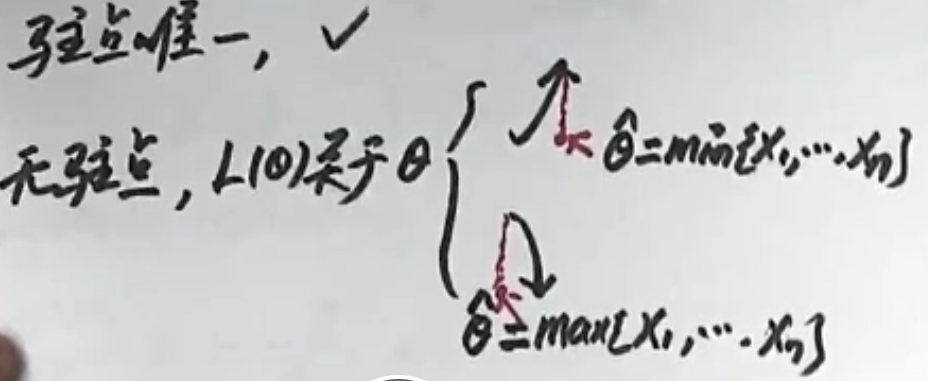 驻点唯一, ✓
无驻点, L(θ)关于θ { ↗ θ̂=min{X₁,…,Xₙ}
↘ θ̂=max{X₁,…,Xₙ}